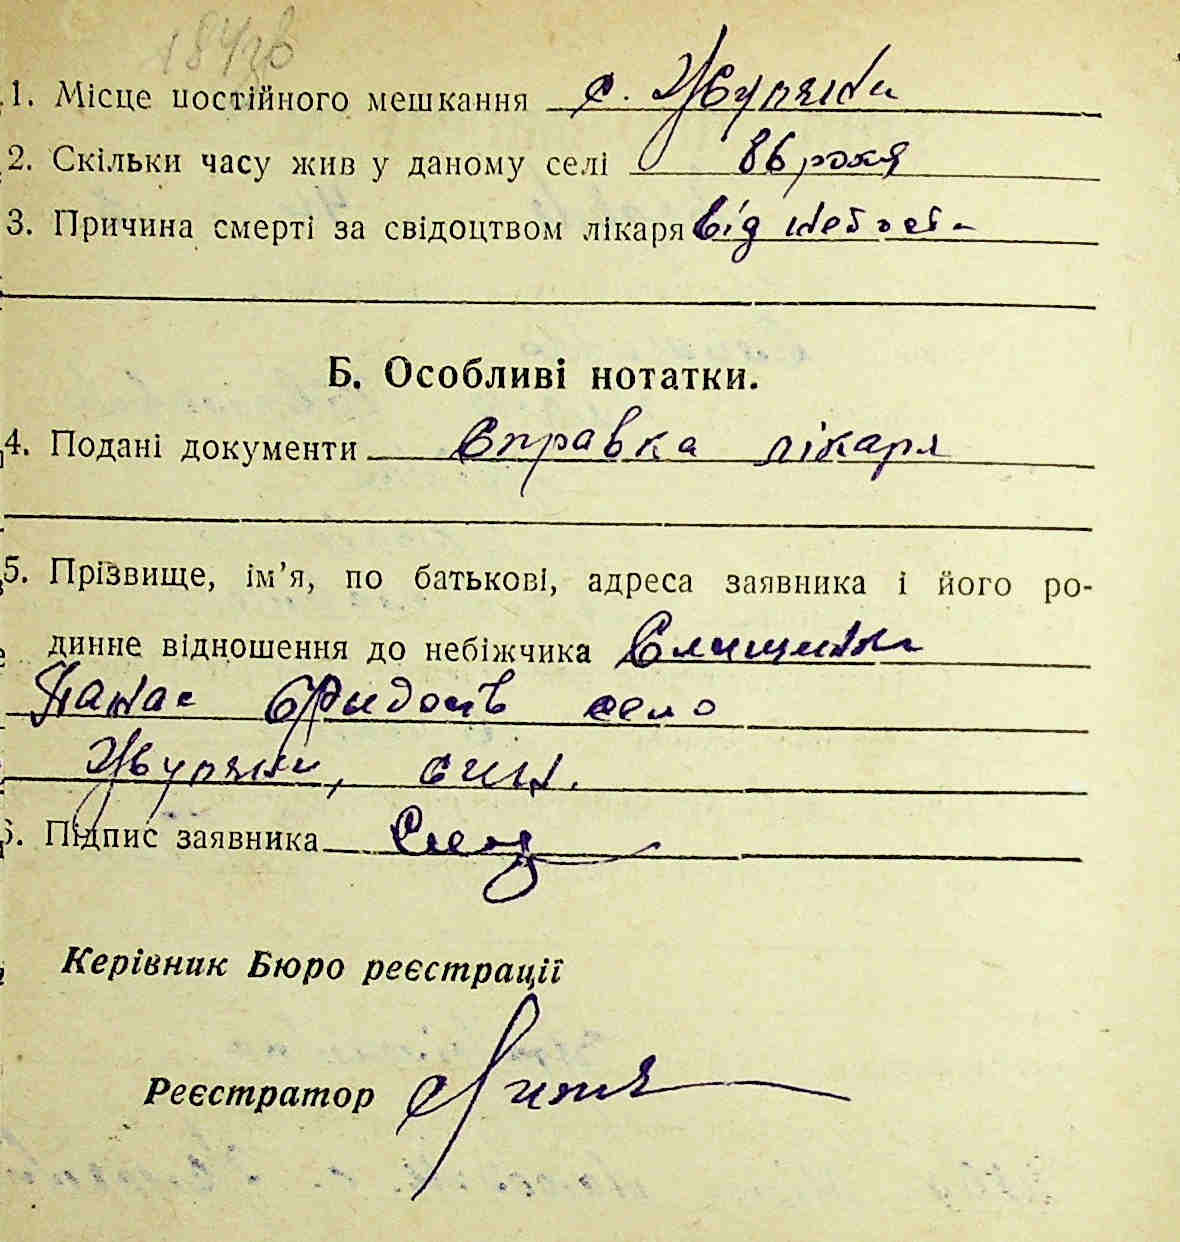 184зв
1. Місце постійного мешкання с.
2. Скільки часу жив у даному селі 86 років
3. Причина смерті за свідоцтвом лікаря від
Б. Особливі нотатки.
4. Подані документи Справка лікаря
5. Прізвище, ім’я, по батькові, адреса заявника і його ро-
динне відношення до небіжчика
Панас село
син.
6. Підпис заявника
Керівник Бюро реєстрації
Реєстратор